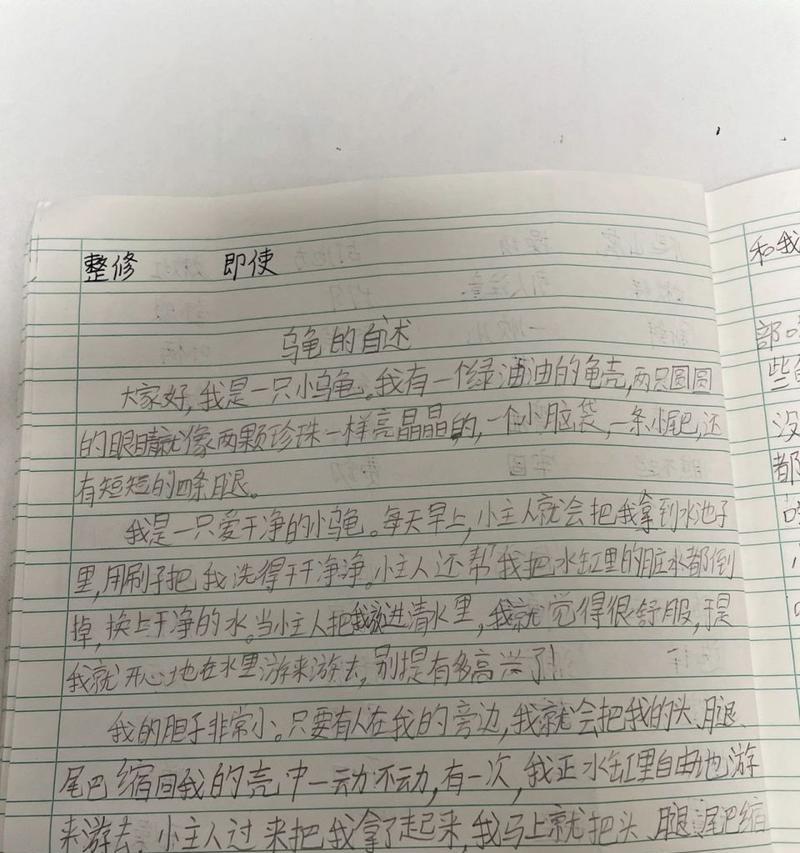 整修 即使
乌龟的自述
大家好,我是一只小乌龟。我有一个绿油油的龟壳,两只圆圆
的眼睛就像两颗珍珠一样亮晶晶的,一个小脑袋,一条小尾巴,还
有短短的四条腿。
我是一只爱干净的小龟。每天早上,小主人就会把我拿到水池子
里,用刷子把我洗得干干净净。小主人还帮我把水缸里的脏水都倒
掉,换上干净的水。当小主人把我放进清水里,我就觉得很舒服,于是
我就开心地在水里游来游去,别提有多高兴了!
我的胆子非常小。只要有人在我的旁边,我就会把我的头、腿、
尾巴缩回我的壳中一动不动,有一次,我正水缸里自由地游
来游去,小主人过来把我拿了起来,我马上就把头、腿、尾巴缩
和我
部
些
没
都